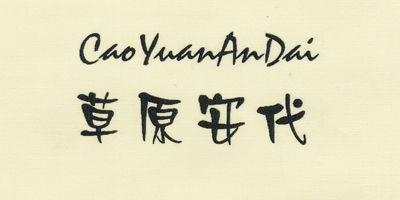 CaoYuanAnDai
草原安代